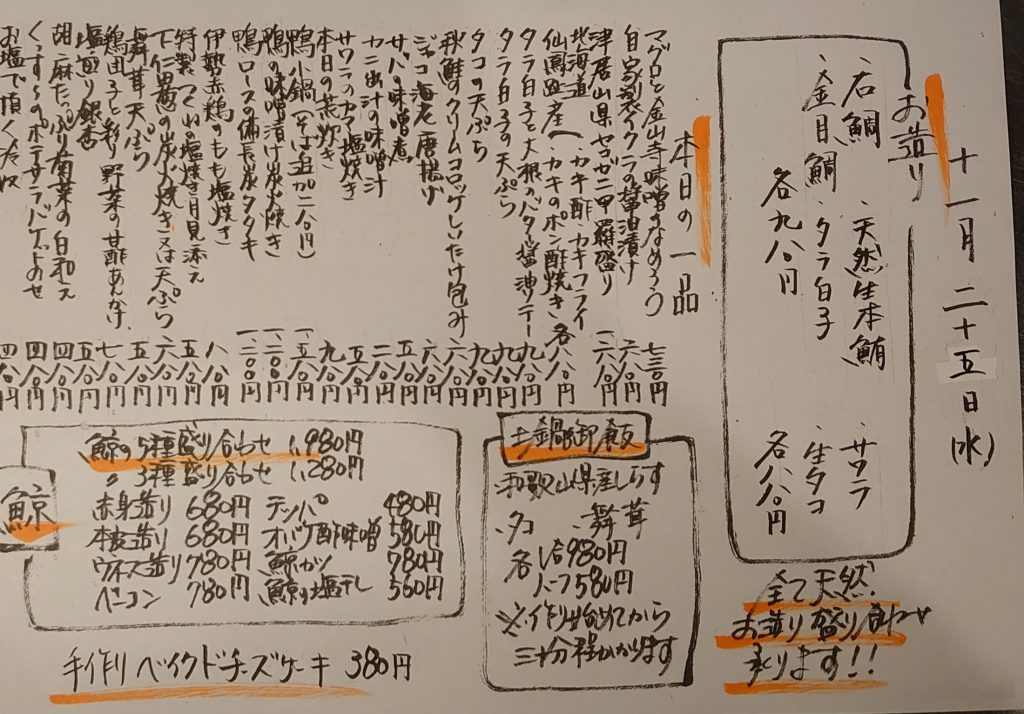 十一月二十五日(水)
お造り
・石鯛 ・天然生本鮪 ・サワラ
・金目鯛 ・タラ白子 ・生タコ
各九八〇円 各八八〇円
全て天然
お造り盛り合わせ
承ります!!
本日の一品
マグロと金山寺味噌のなめろう 七三〇円
自家製イクラの醤油漬け 六八〇円
津居山県セコガニ甲羅盛り 一、二六八〇円
北海道
仙鳳趾産 ・カキ酢・カキフライ
・カキのポン酢焼き 各八八〇円
タラ白子と大根のバター醤油ソテー 九八〇円
タラ白子の天ぷら 九八〇円
タコの天ぷら 九八〇円
秋鮭のクリームコロッケしいたけ包み 六八〇円
ジャコ海老唐揚げ 六八〇円
サバの味噌煮 五八〇円
カニ出汁の味噌汁 二八〇円
サワラのカマ塩焼き 五八〇円
本日の荒炊き 九八〇円
鴨小鍋(そば追加二八〇円) 一、五八〇円
鴨の味噌漬け炭火焼き 一、二八〇円
鴨ロースの備長炭タタキ 一、二〇〇円
伊勢赤鶏のもも塩焼き 八八〇円
特製つくねの塩焼き月見添え 六八〇円
下仁田葱の炭火焼き又は天ぷら 六八〇円
舞茸天ぷら 五八〇円
鶏団子と彩り野菜の甘酢あんかけ 七八〇円
塩煎り銀杏 五八〇円
胡麻たっぷり菊菜の白和え 四八〇円
くっすらのポテサラバゲットのせ 四八〇円
お塩で頂く冷奴 四八〇円
土鍋御飯
・和歌山県産しらす
・タコ ・舞茸
各1合980円
ハーフ580円
※作り始めてから
三十分程かかります
鯨
鯨の5種盛り合わせ 1,980円
〃 3種盛り合わせ 1,280円
赤身造り 680円 テンパ 480円
本皮造り 680円 オバケ酢味噌 580円
ウネス造り 780円 鯨カツ 980円
ベーコン 780円 鯨の塩干し 560円
手作りベイクドチーズケーキ 380円